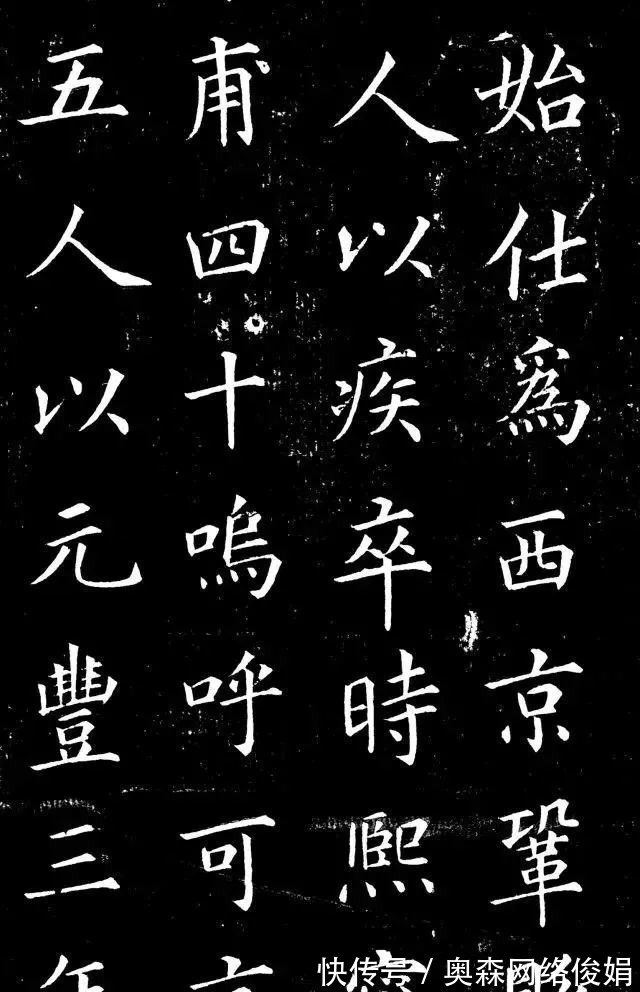 始仕爲西京鞏
人以疾卒時熙
甫四十嗚呼可
五人以元豐三年
快传号/奥森网络俊娟